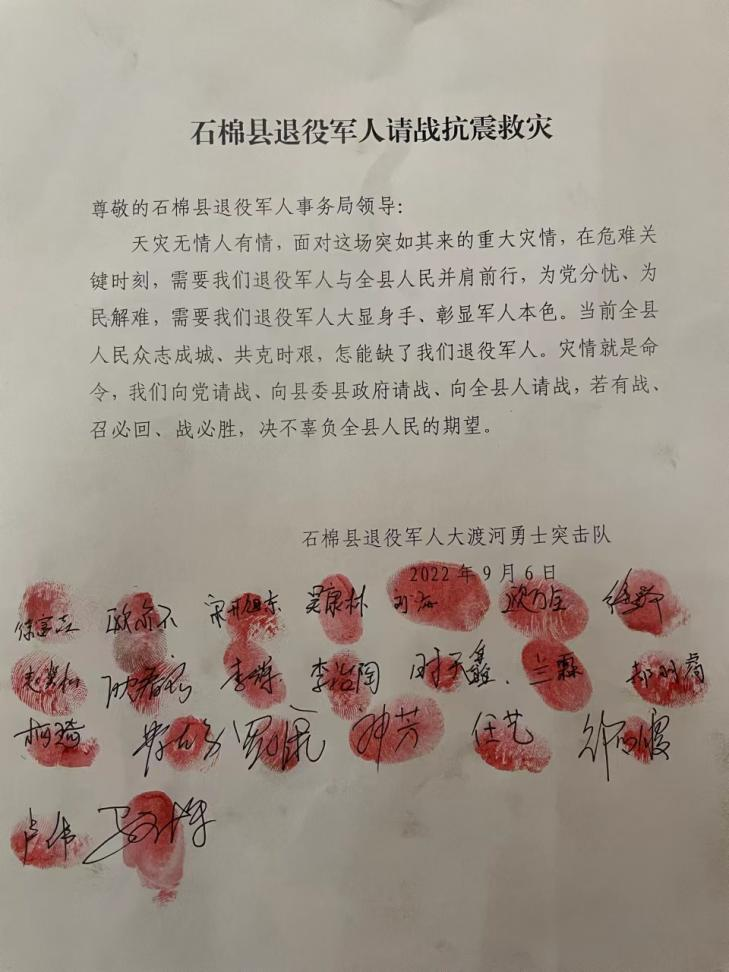 石棉县退役军人请战抗震救灾
尊敬的石棉县退役军人事务局领导：
天灾无情人有情，面对这场突如其来的重大灾情，在危难关
键时刻，需要我们退役军人与全县人民并肩前行，为党分忧、为
民解难，需要我们退役军人大显身手、彰显军人本色。当前全县
人民众志成城、共克时艰，怎能缺了我们退役军人。灾情就是命
令，我们向党请战、向县委县政府请战、向全县人请战，若有战、
召必回、战必胜，决不辜负全县人民的期望。
石棉县退役军人大渡河勇士突击队
2022 年 9 月 6 日
吴康林
李浩陶 时天鑫 兰霖
柯琦 钟芳 任艺
卢伟